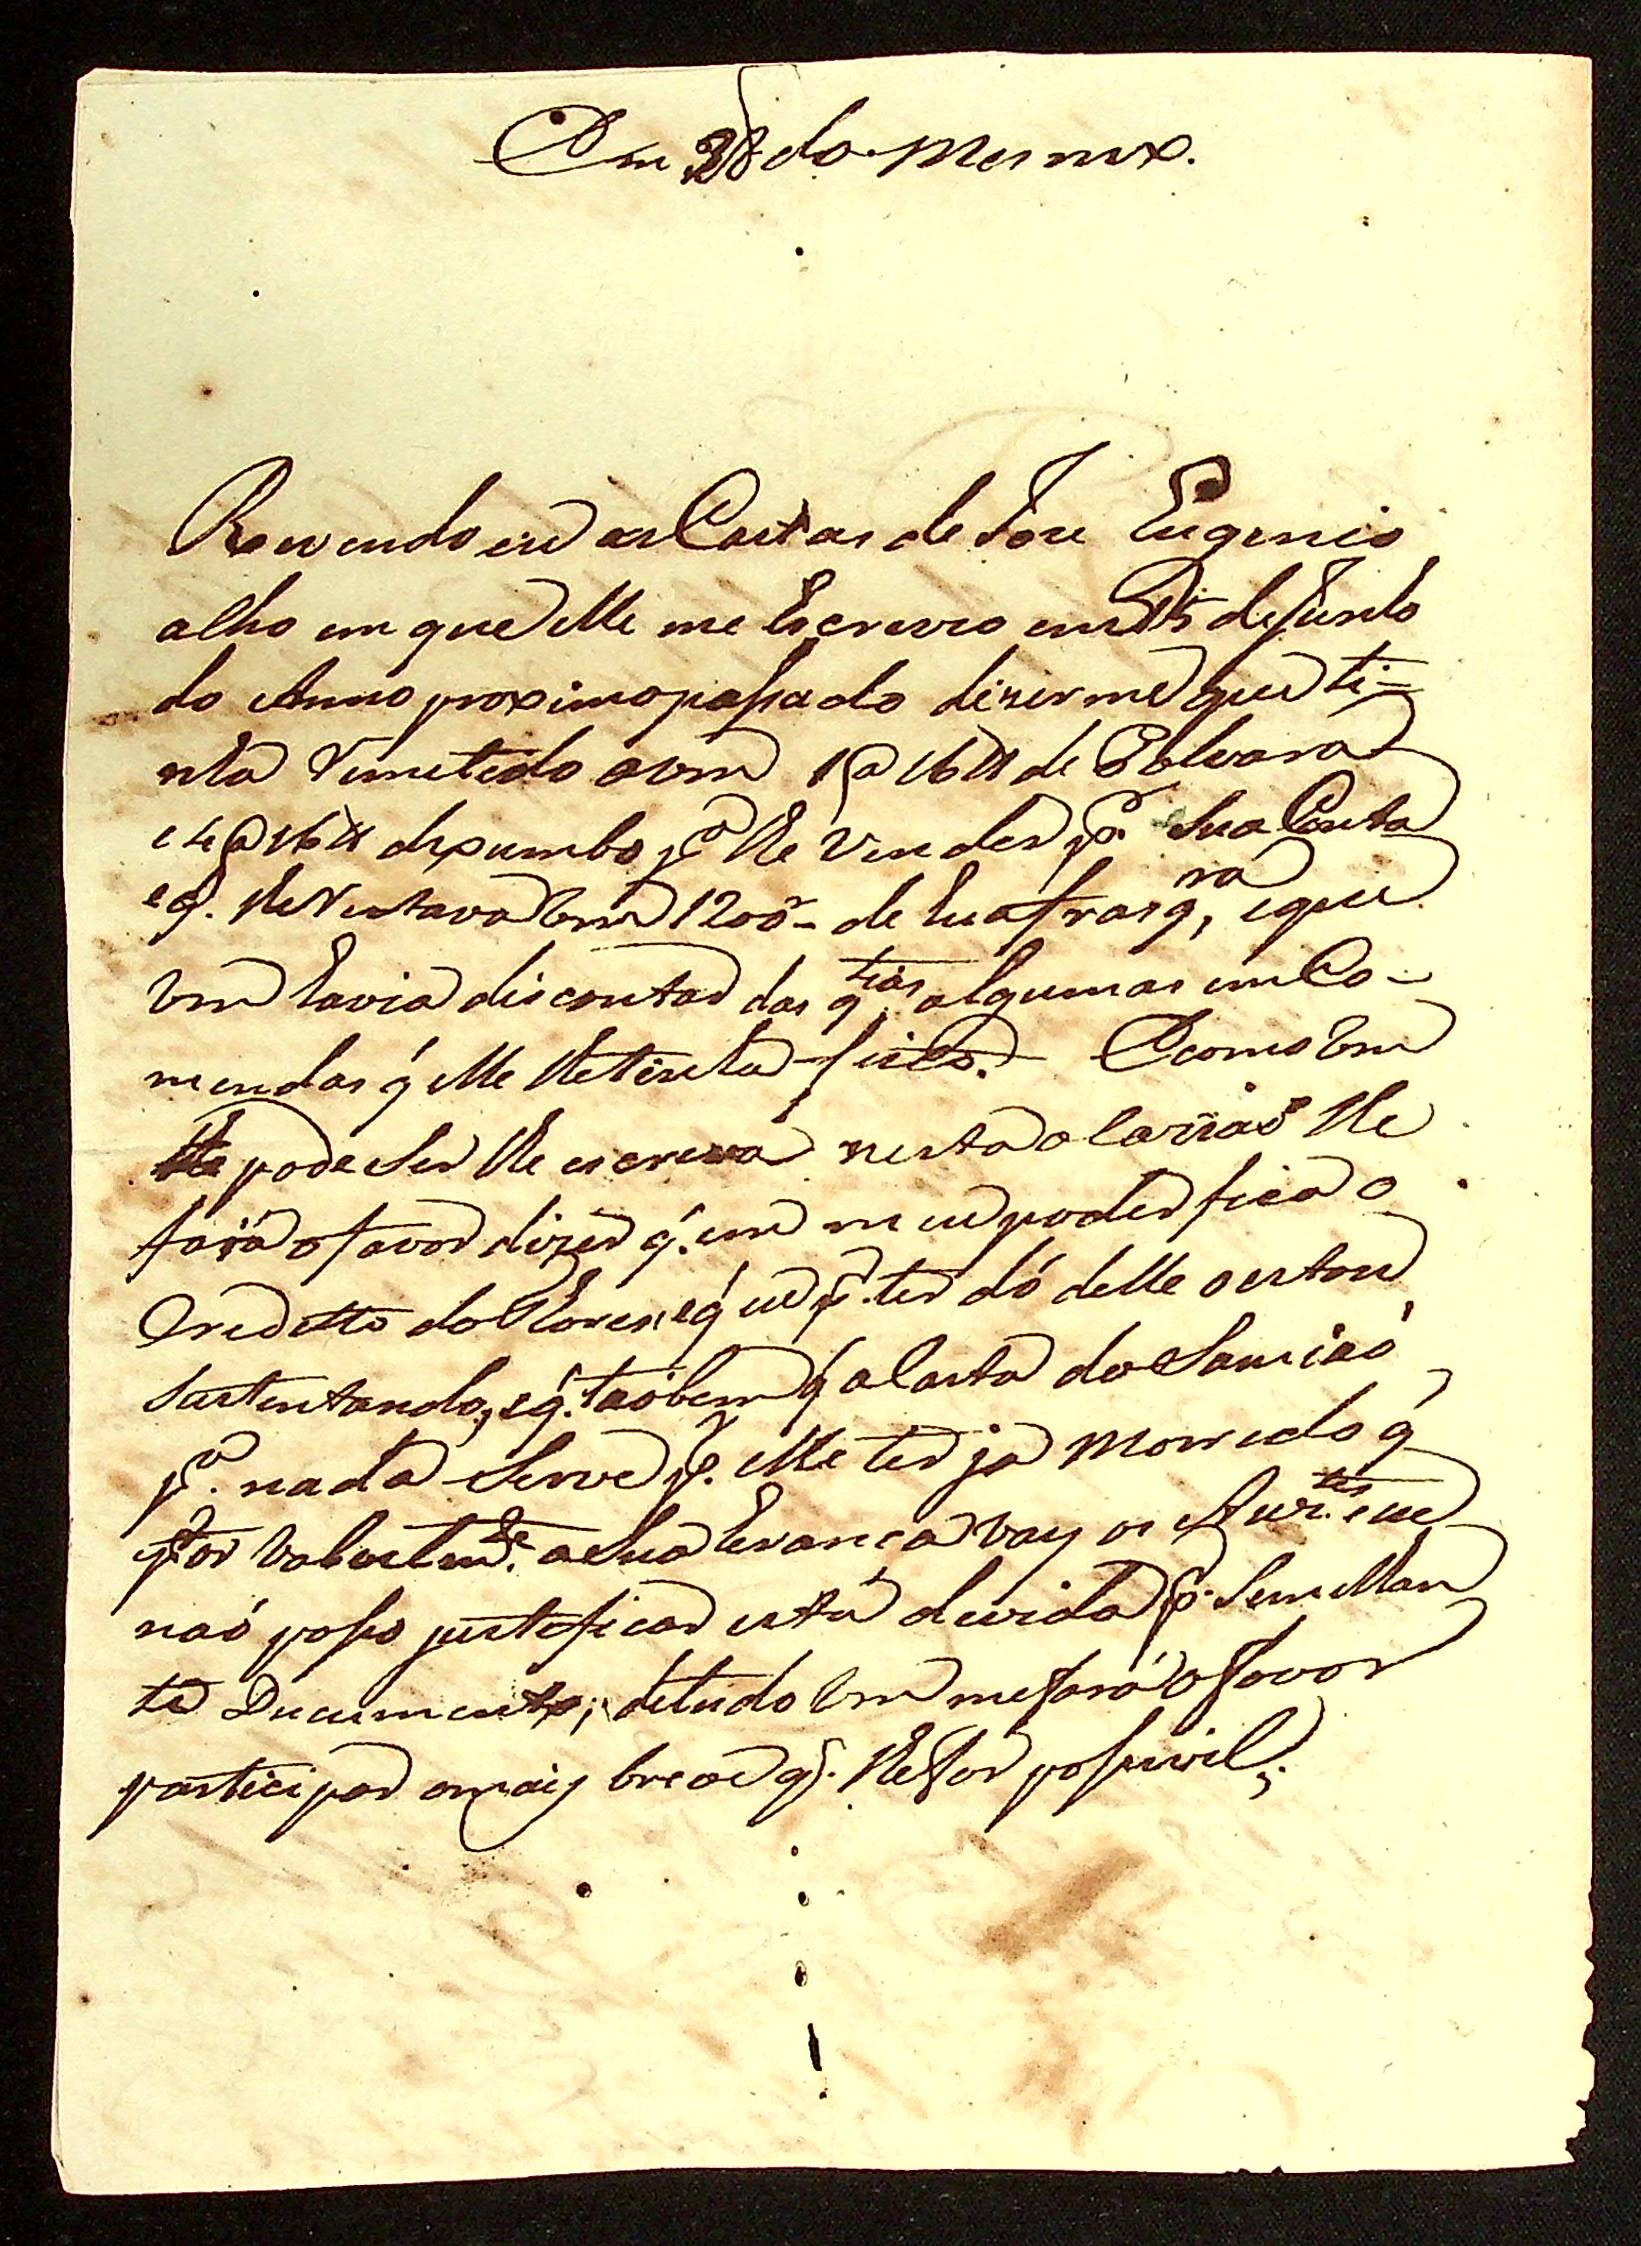 Em 28 do mesmo.
Revendo eu as Cartas de Joze Eugenio
alho em que elle me Escreveo em 15 de Junho
do Anno proximo passado dizerme que ti=
nha Remetido a vm 1@ 16 lb de Polvara
e 4@ 16 lb de xumbo pª lhe vender pr. Sua Conta
e q. lhe Restava vm 1200 - de hua frasqra, e que
vm havia discontar das qtias algumas em Co-
mendas q̃ elle lhe tinha feito. E como vm
pode ser lhe escreva nesta ocaziaõ lhe
fará o favor dizer q̃. em meu poder fica o
Creditto do Flores, e q̃ eu pr. ter dó delle o estou
sustentando, e q̃. taõbem q̃ a Carta do Samiaõ
pª. nada serve pr. elle ter ja morrido q̃
por
a sua herança vay os Auztes e eu
naõ posso justeficar esta devida pr. semelhan
te Ducumento; de tudo vm me fará o favor
participar o mais breve q̃. lhe for possivel;